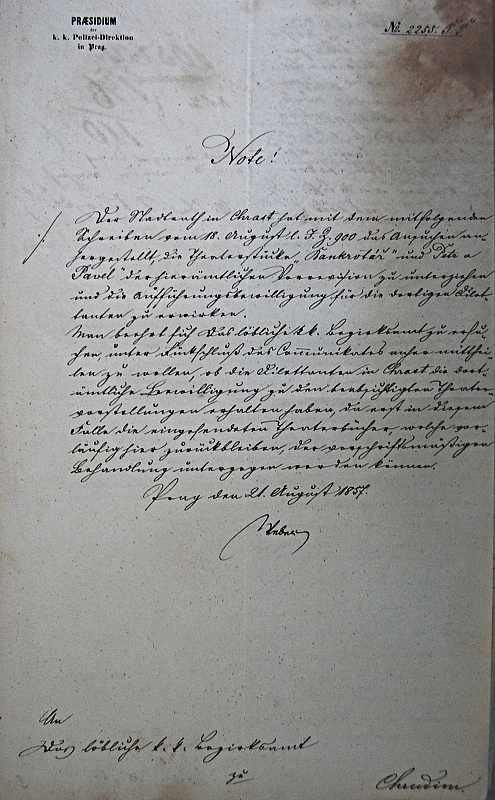 PRÆSIDIUM
der
k. k. Polizei-Direktion
in Prag.
No. 2255. P. P.
Note!
Der Stadtrath in Chrast hat mit dem mitfolgenden
Schreiben vom 18. August l. J. Z. 900 das Ansuchen an-
hergestellt, die Theaterstücke „Bankrotář" und Petr a
Pavel" der hierämtlichen Vorrevision zu unterziehen
und die Aufführungsbewilligung für die dortigen Dilet-
tanten zu erwirken.
Man beehrt sich Das löbliche k. k. Bezirksamt zu ersu-
chen, unter Rückschluß des Communikates anher mitthei-
len zu wollen, ob die Dilettanten in Chrast die dort-
ämtliche Bewilligung zu den beabsichtigten Theater-
vorstellungen erhalten haben, da erst in diesem
Falle die eingesendeten Theaterbücher, welche vor-
läufig hier zurückbleiben, der vorschriftsmäßigen
Behandlung unterzogen werden können.
Prag den 21. August 1857.
Weber
An
Das löbliche k. k. Bezirksamt
zu
Chrudim